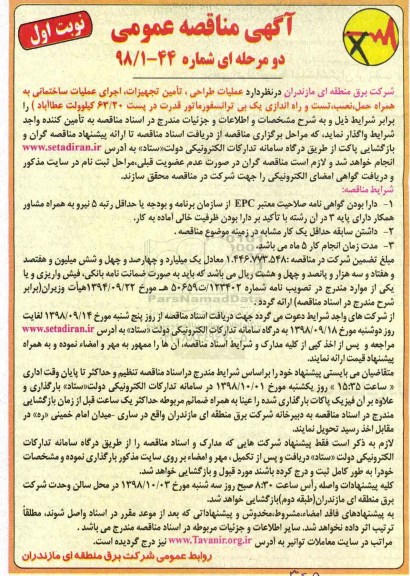 نوبت اول
آگهی مناقصه عمومی
دو مرحله ای شماره ۴۴-۹۸/۱
شرکت برق منطقه ای مازندران درنظردارد عملیات طراحی ، تأمین تجهیزات، اجرای عملیات ساختمانی به
همراه حمل،نصب،تست و راه اندازی یک بی ترانسفورماتور قدرت در پست ۶۳/۲۰ کیلوولت عطاآباد ) را
برابر شرایط ذیل و به شرح مشخصات و اطلاعات و جزئیات مندرج در اسناد مناقصه به تأمین کننده واجد
شرایط واگذار نماید، که مراحل برگزاری مناقصه از دریافت اسناد مناقصه تا ارائه پیشنهاد مناقصه گران و
بازگشایی پاکت از طریق درگاه سامانه تدارکات الکترونیکی دولت«ستاد» به آدرس www.setadiran.ir
انجام خواهد شد و لازم است مناقصه گران در صورت عدم عضویت قبلی،مراحل ثبت نام در سایت مذکور
و دریافت گواهی امضای الکترونیکی را جهت شرکت در مناقصه محقق سازند.
شرایط مناقصه:
۱- دارا بودن گواهی نامه صلاحیت معتبر EPC از سازمان برنامه و بودجه یا حداقل رتبه ۵ نیرو به همراه مشاور
همکار دارای پایه ۳ در آن رشته با تأکید بر دارا بودن ظرفیت خالی آماده به کار.
۲- داشتن سابقه حداقل یک کار مشابه در زمینه موضوع مناقصه .
۳- مدت زمان انجام کار ۵ ماه می باشد.
مبلغ تضمین شرکت در مناقصه :۱.۴۴۶.۷۷۳.۵۴۸ معادل یک میلیارد و چهارصد و چهل و شش میلیون و هفتصد
و هفتاد و سه هزار و پانصد و چهل و هشت ریال می باشد که باید به صورت ضمانت نامه بانکی، فیش واریزی و یا
یکی از موارد مندرج در تصویب نامه شماره ۱۲۳۴۰۲/ت۵۰۶۵۹ هـ مورخ ۱۳۹۴/۰۹/۲۲هیأت وزیران(برابر
شرح مندرج در اسناد مناقصه) ارائه گردد .
از شرکت های واجد شرایط دعوت می گردد جهت دریافت اسناد مناقصه از روز پنج شنبه مورخ ۱۳۹۸/۰۹/۱۴ لغایت
روز دوشنبه مورخ ۱۳۹۸/۰۹/۱۸ به درگاه سامانه تدارکات الکترونیکی دولت «ستاد» به آدرس www.setadiran.ir
مراجعه و پس از اخذ کپی از کلیه مدارک و شرایط اسناد مناقصه، آن ها را ممهور به مهر و امضاء نموده و به همراه
پیشنهاد قیمت ارائه نمایند.
متقاضیان می بایستی پیشنهاد خود را براساس شرایط مندرج دراسناد مناقصه تنظیم و حداکثر تا پایان وقت اداری
« ساعت ۱۵:۳۵ » روز یکشنبه مورخ ۱۳۹۸/۱۰/۰۱ در سامانه تدارکات الکترونیکی دولت«ستاد» بارگذاری و
علاوه بر آن فیزیک پاکات بارگذاری شده را عینا به همراه ضمائم مربوطه حداکثر یک ساعت قبل از زمان بازگشایی
مندرج در اسناد مناقصه به دبیرخانه شرکت برق منطقه ای مازندران واقع در ساری -میدان امام خمینی «ره» در
مقابل اخذ رسید تحویل نمایند.
لازم به ذکر است فقط پیشنهاد شرکت هایی که مدارک و اسناد مناقصه را از طریق درگاه سامانه تدارکات
الکترونیکی دولت «ستاد»دریافت و پس از تکمیل ، مهر و امضاء بر روی سایت مذکور بارگذاری نموده و مشخصات
خودرا به طور کامل ثبت و درج کرده باشند مورد قبول و بازگشایی خواهد شد.
کلیه پیشنهادات واصله رأس ساعت ۸:۳۰ صبح روز سه شنبه مورخ ۱۳۹۸/۱۰/۰۳ در محل سالن وحدت شرکت
برق منطقه ای مازندران(طبقه دوم)بازگشایی خواهد شد.
به پیشنهادهای فاقد امضاء،مشروط،مخدوش و پیشنهاداتی که بعد از موعد مقرر در اسناد واصل شوند، مطلقاً
ترتیب اثر داده نخواهد شد. سایر اطلاعات و جزئیات مربوطه در اسناد مناقصه مندرج می باشد .
مورد در سایت معاملات توانیر به آدرس www.Tavanir.org.ir نیز درج گردیده است.
روابط عمومی شرکت برق منطقه ای مازندران